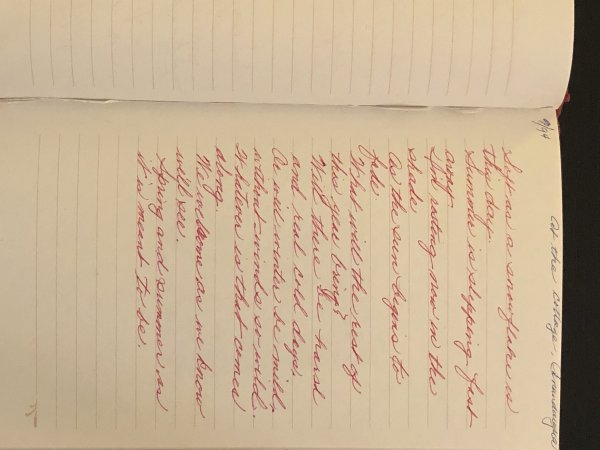 At the cottage,
9/94
Soft as a snowflake is
this day.
Summer is slipping fast
away
I'm sitting now in the
shade
As the sun begins to
fade
What will the rest of
this year bring?
Will there be harsh
and real cold days
Or will winter be mild
without winds so wild.
Whatever is that comes
along.
as we know
we'll see.
Spring and summer as
it is meant to be.